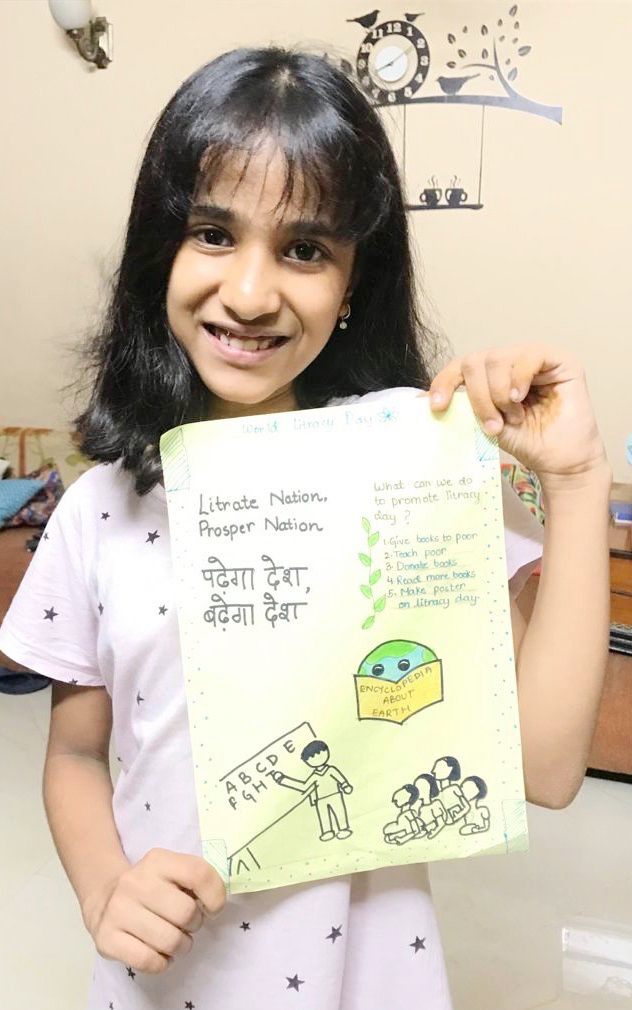 World litracy Day
Litrate Nation,
Prosper Nation
पढ़ेगा देश,
बढ़ेगा देश
What can we do
to promote litracy
day ?
1. Give books to poor
2. Teach poor
3. Donate books
4. Read more books
5. Make poster
on litracy day.
ENCYCLOPEDIA
ABOUT
EARTH
A B C D E
F G H I